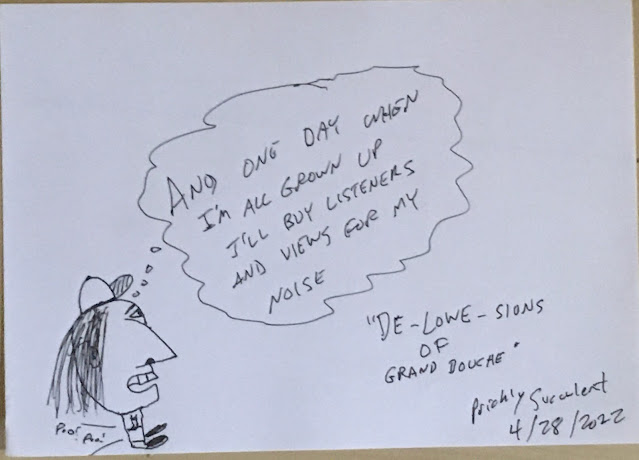 AND ONE DAY WHEN
I'M ALL GROWN UP
I'LL BUY LISTENERS
AND VIEWS FOR MY
NOISE
"DE-LOWE-SIONS
OF
GRAND DOUCHE"
Prickly Succulent
4/28/2022